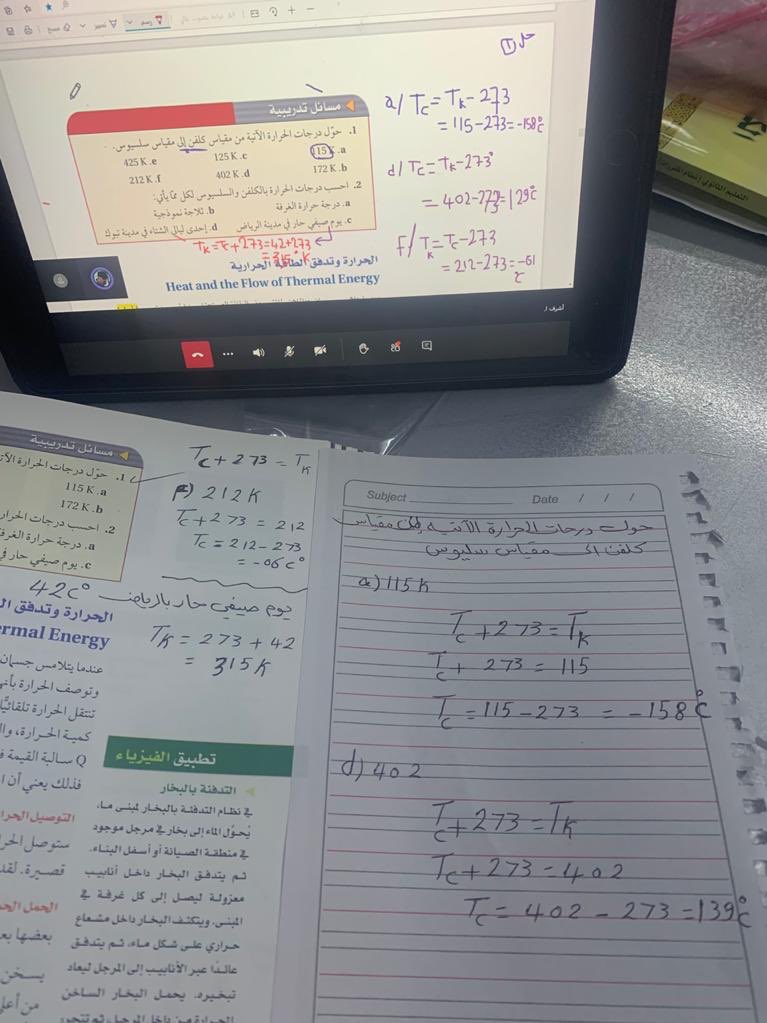 حل ①
a/ Tc = TK - 273
= 115 - 273 = -158°c
d/ Tc = TK - 273°
= 402 - 273 = 129°c
F/ TK = Tc - 273
= 212 - 273 = -61
c
مسائل تدريبية
1. حوّل درجات الحرارة الآتية من مقياس كلفن إلى مقياس سلسيوس.
115 K .a 125 K .c 425 K .e
172 K .b 402 K .d 212 K .f
2. احسب درجات الحرارة بالكلفن والسلسيوس لكل مما يأتي:
a. درجة حرارة الغرفة b. ثلاجة نموذجية
c. يوم صيفي حار في مدينة الرياض d. إحدى ليالي الشتاء في مدينة تبوك
TK = Tc + 273 = 42 + 273
= 315° K
الحرارة وتدفق الطاقة الحرارية
Heat and the Flow of Thermal Energy
أشرف ا.
التعليم الثانوي (نظام المقررات)
مسائل تدريبية
1. حوّل درجات الحرارة الآ
115 K .a
172 K .b
2. احسب درجات الحرار
a. درجة حرارة الغرفة
c. يوم صيفي حار في
Tc + 273 = TK
F) 212 K
Tc + 273 = 212
Tc = 212 - 273
= -06 c°
يوم صيفي حار بالرياض 42c°
TK = 273 + 42
= 315 K
الحرارة وتدفق ال
ermal Energy
عندما يتلامس جسمان
وتوصف الحرارة بأنه
تنتقل الحرارة تلقائيًّا
كمية الحرارة، وال
Q سالبة القيمة ف
فذلك يعني أن ا
التوصيل الحرا
ستوصل الحر
قصيرة. لقد
الحمل الحر
بعضها بع
يسخن
من أعل
تطبيق الفيزياء
التدفئة بالبخار
في نظام التدفئة بالبخار لمبنى ما،
يُحوَّل الماء إلى بخار في مرجل موجود
في منطقة الصيانة أو أسفل البناء.
ثم يتدفق البخار داخل أنابيب
معزولة ليصل إلى كل غرفة في
المبنى. ويتكثف البخار داخل مشعاع
حراري على شكل ماء، ثم يتدفق
عائدًا عبر الأنابيب إلى المرجل ليعاد
تبخيره. يحمل البخار الساخن
الحرارة من داخل المرجل، ثم تتحرر
Subject Date / / /
حول درجات الحرارة الآتية من مقياس
كلفن الى مقياس سليوس
a) 115 K
Tc + 273 = TK
Tc + 273 = 115
Tc = 115 - 273 = -158°c
d) 402
Tc + 273 = TK
Tc + 273 = 402
Tc = 402 - 273 = 139°c